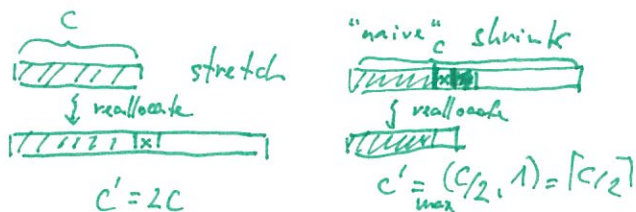 C
stretch
reallocate
x
C' = 2C
"naive" shrink
C
x
reallocate
C' = max (C/2, 1) = ⌈C/2⌉